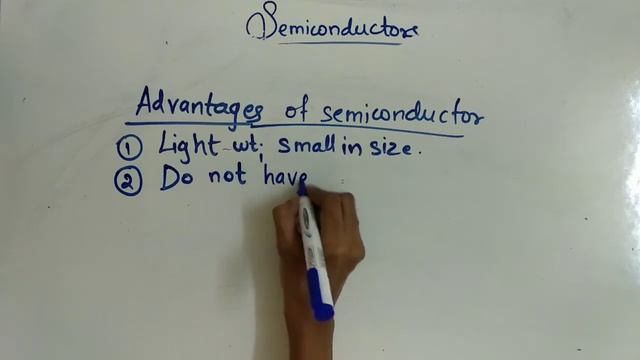 Semiconductors
Advantages of semiconductor
① Light wt; small in size.
② Do not have